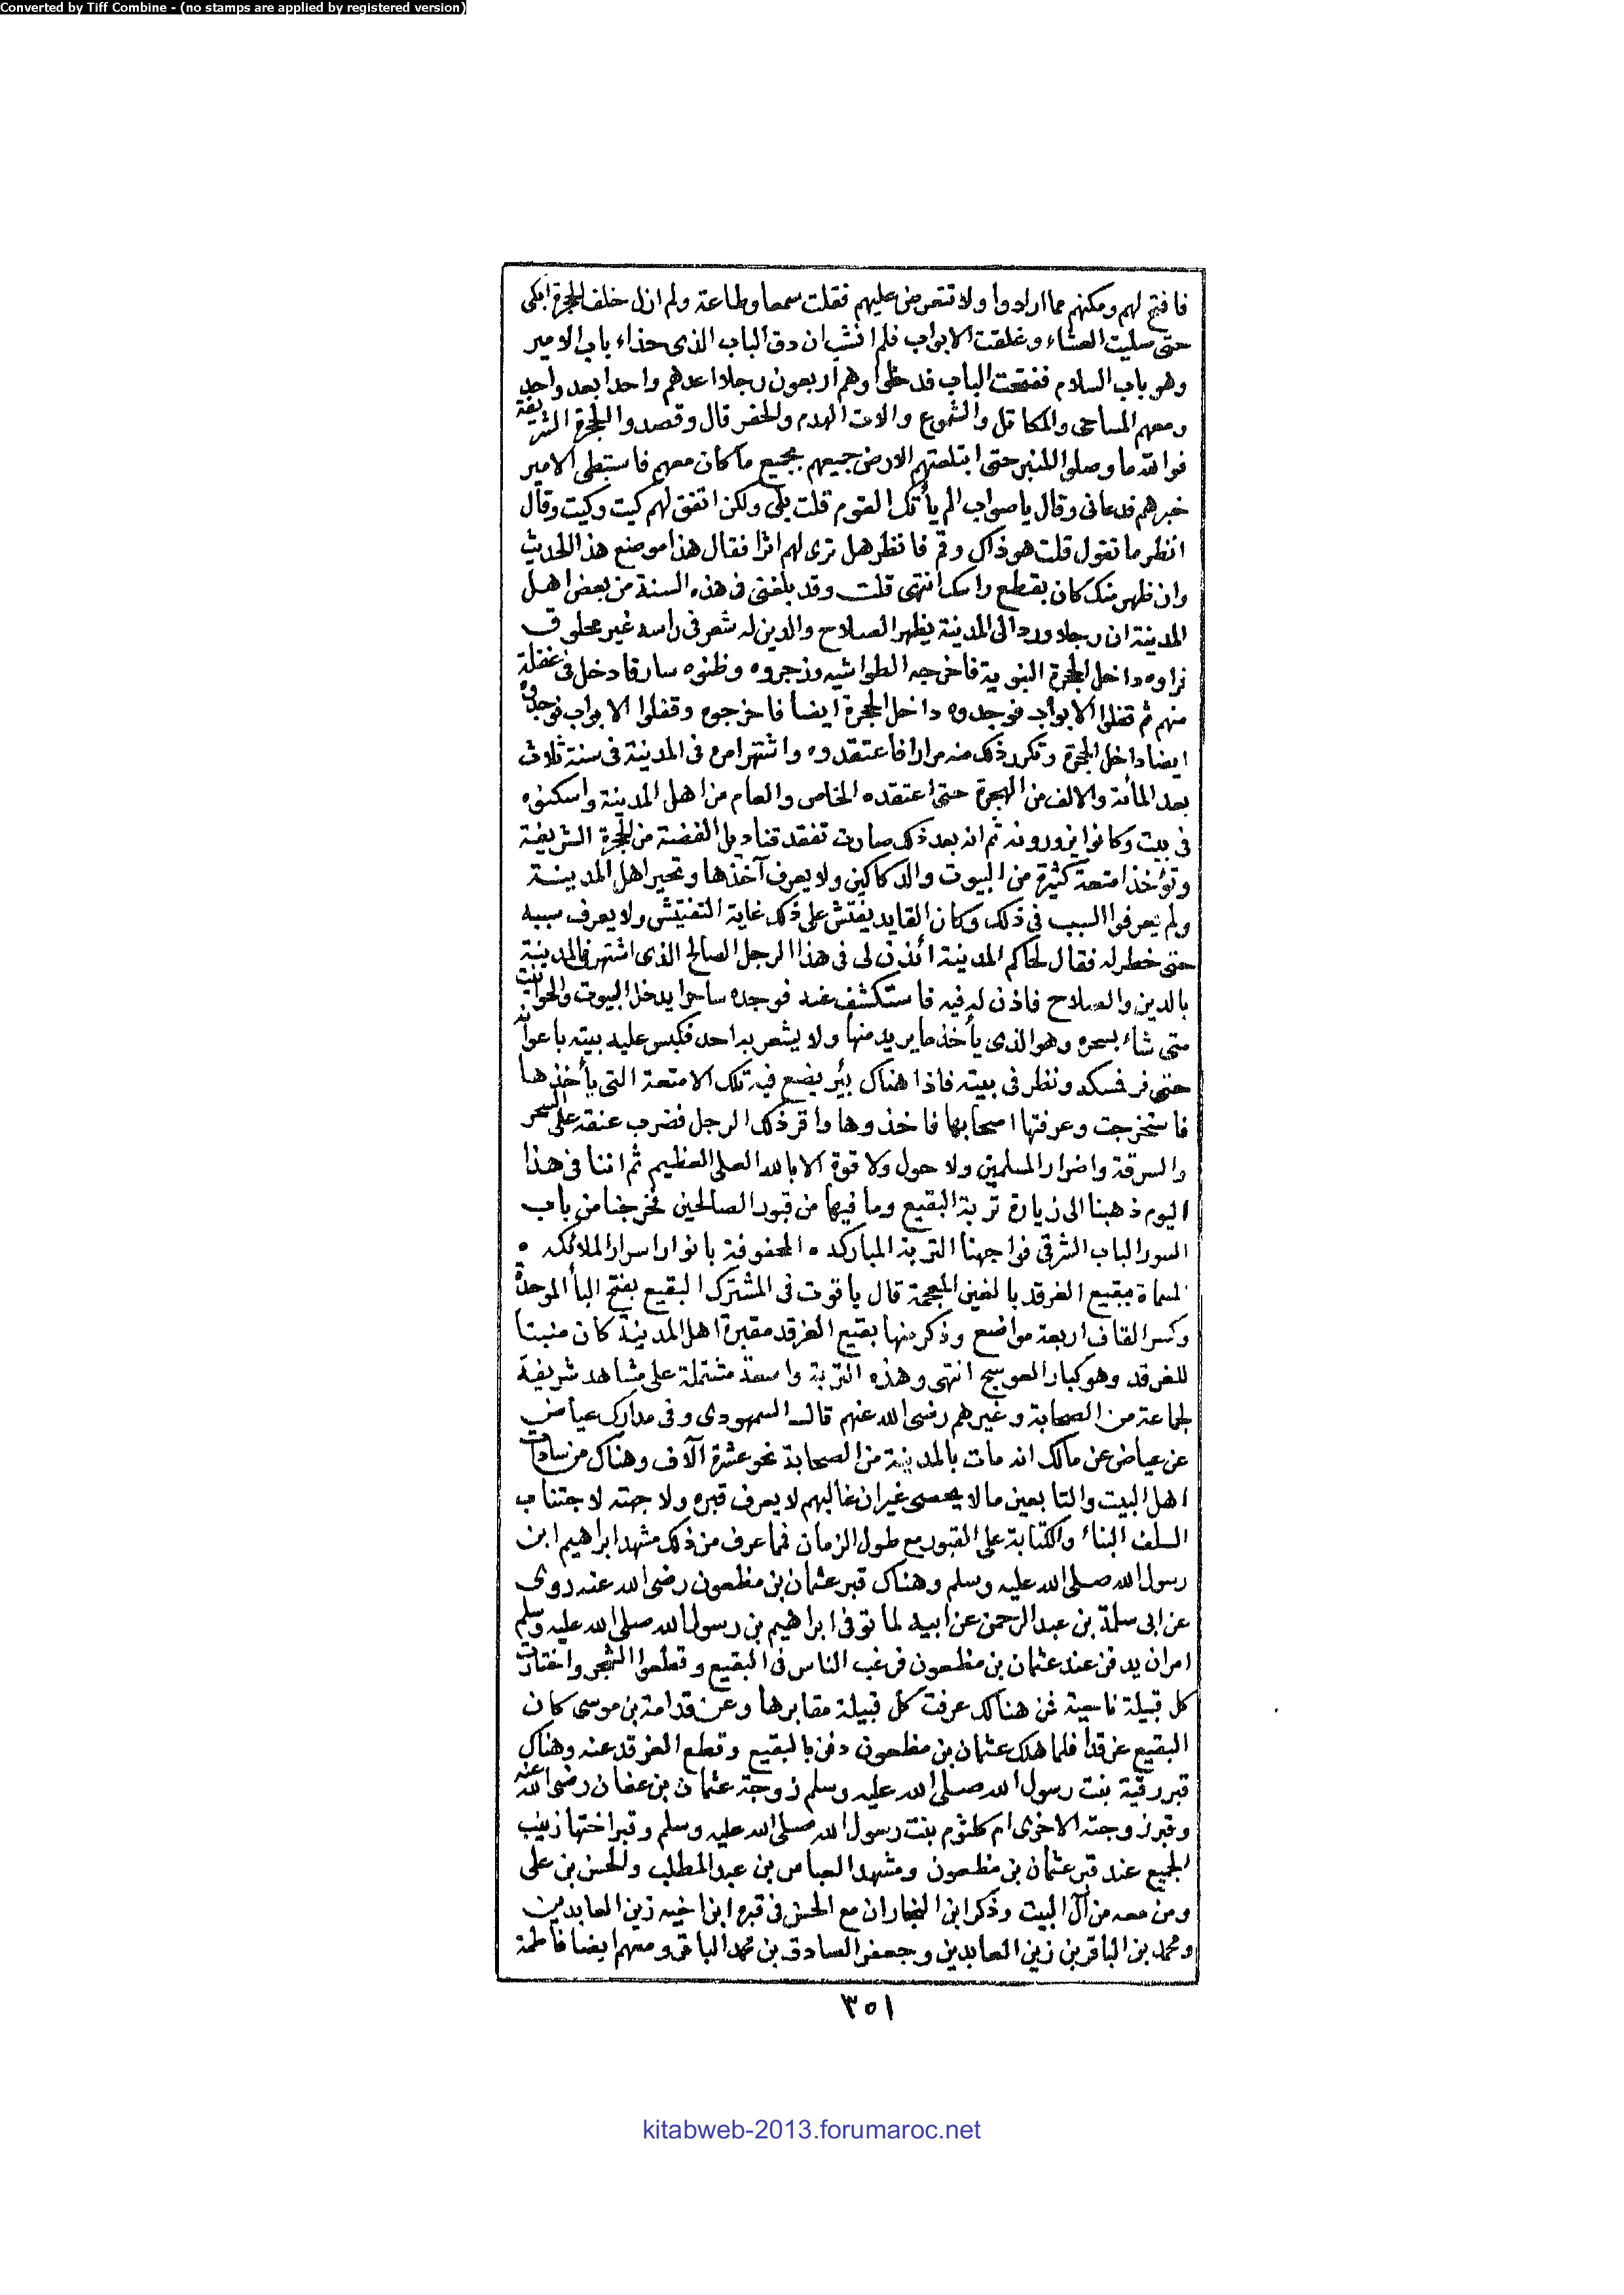 Converted by Tiff Combine - (no stamps are applied by registered version)
فافتح لهم ومكنهم مما ارادوا ولا تتعرض عليهم فقلت سمعا وطاعة ولم ازل خلف الحجرة ابكى
حتى صليت العشاء وغلقت الابواب فلم انشب ان دق الباب الذى حذاء باب الامير
وهو باب السلام ففتحت الباب فدخلوا وهم اربعون رجلا اعدهم واحدا بعد واحد
ومعهم المساحى والمكاتل والشموع والات الهدم والحفر قال وقصدوا الحجرة الشريفة
فوالله ما وصلوا المنبر حتى ابتلعتهم الارض جميعهم بجميع ما كان معهم فاستبطى الامير
خبرهم فدعانى وقال يا صواب الم يأتك القوم قلت بلى ولكن اتفق لهم كيت وكيت وقال
انظر ما تقول قلت هو ذاك وقم فانظر هل ترى لهم اثرا فقال هذا موضع هذا الحديث
وان ظهر منك كان بقطع راسك انتهى قلت وقد بلغنى فى هذه السنة من بعض اهل
المدينة ان رجلا ورد الى المدينة يظهر الصلاح والدين له شعر فى راسه غير محلوق
فراوه داخل الحجرة النبوية فاخرجه الطواشيه وزجروه وظنوه سارقا دخل فى غفلة
منهم ثم قفلوا الابواب فوجدوه داخل الحجرة ايضا فاخرجوه وقفلوا الابواب فوجدوه
ايضا داخل الحجرة وتكرر ذلك منه مرارا فاعتقدوه واشتهر امره فى المدينة فى سنة ثلاث
بعد المأئة والالف من الهجرة حتى اعتقده الخاص والعام من اهل المدينة واسكنوه
فى بيت وكانوا يزورونه ثم انه بعد ذلك صارت تفقد قناديل الفضة من الحجرة الشريفة
وتؤخذ امتعة كثيرة من البيوت والدكاكين ولا يعرف آخذها وتحير اهل المدينة
ولم يعرفوا السبب فى ذلك وكان القايد يفتش على ذلك غاية التفتيش ولا يعرف سببه
حتى خطر له فقال لحاكم المدينة أئذن لى فى هذا الرجل الصالح الذى اشتهر فى المدينة
بالدين والصلاح فاذن له فيه فاستكشف عنه فوجده ساحرا يدخل البيوت والحوانيت
متى شاء بسحره وهو الذى يأخذ ما يريد منها ولا يشعر به احد فكبس عليه بيته باعوانه
حتى فر فمسكه ونظر فى بيته فاذا هناك بئر يضع فيه تلك الامتعة التى يأخذها
فاستخرجت وعرفتها اصحابها فاخذوها واقر ذلك الرجل فضرب عنقه على السحر
والسرقة واضرار المسلمين ولا حول ولا قوة الا بالله العلى العظيم ثم اننا فى هذا
اليوم ذهبنا الى زيارة تربة البقيع وما فيها من قبور الصالحين فخرجنا من باب
السور الباب الشرقى فواجهنا التربة المباركه ٠ المحفوفة بانوار اسرار الملائكه ٠
المسماة ببقيع الغرقد بالغين المعجمة قال ياقوت فى المشترك البقيع بفتح البأ الموحدة
وكسر القاف اربعة مواضع وذكر منها بقيع الغرقد مقبرة اهل المدينة كان منبتا
للغرقد وهو كبار العوسج انتهى وهذه التربة واسعة مشتملة على مشاهد شريفة
لجماعة من الصحابة وغيرهم رضى الله عنهم قال السمهودى وفى مدارك عياض
عن عياض عن مالك انه مات بالمدينة من الصحابة نحو عشرة آلاف وهناك من سادات
اهل البيت والتابعين ما لا يحصى غير ان غالبهم لا يعرف قبره ولا جهته لاجتناب
السلف البناء والكتابة على القبور مع طول الزمان فما عرف من ذلك مشهد ابراهيم ابن
رسول الله صلى الله عليه وسلم وهناك قبر عثمان بن مظعون رضى الله عنه روى
عن ابى سلمة بن عبد الرحمن عن ابيه لما توفى ابراهيم بن رسول الله صلى الله عليه وسلم
امر ان يدفن عند عثمان بن مظعون فرغب الناس فى البقيع وقطعوا الشجر واختارت
كل قبيلة ناحية فمن هنالك عرفت كل قبيلة مقابرها وعن قدامة بن موسى كان
البقيع غرقدا فلما هلك عثمان بن مظعون دفن بالبقيع وقطع الغرقد عنه وهناك
قبر رقية بنت رسول الله صلى الله عليه وسلم زوجة عثمان بن عفان رضى الله عنه
وقبر زوجته الاخرى ام كلثوم بنت رسول الله صلى الله عليه وسلم وقبر اختها زينب
الجميع عند قبر عثمان بن مظعون ومشهد العباس بن عبد المطلب والحسن بن على
ومن معه من آل البيت وذكر ابن النجار ان مع الحسن فى قبره ابن اخيه زين العابدين
ومحمد بن الباقر بن زين العابدين وجعفر الصادق بن محمد الباقر ومعهم ايضا فاطمة
٣٥١
kitabweb-2013.forumaroc.net